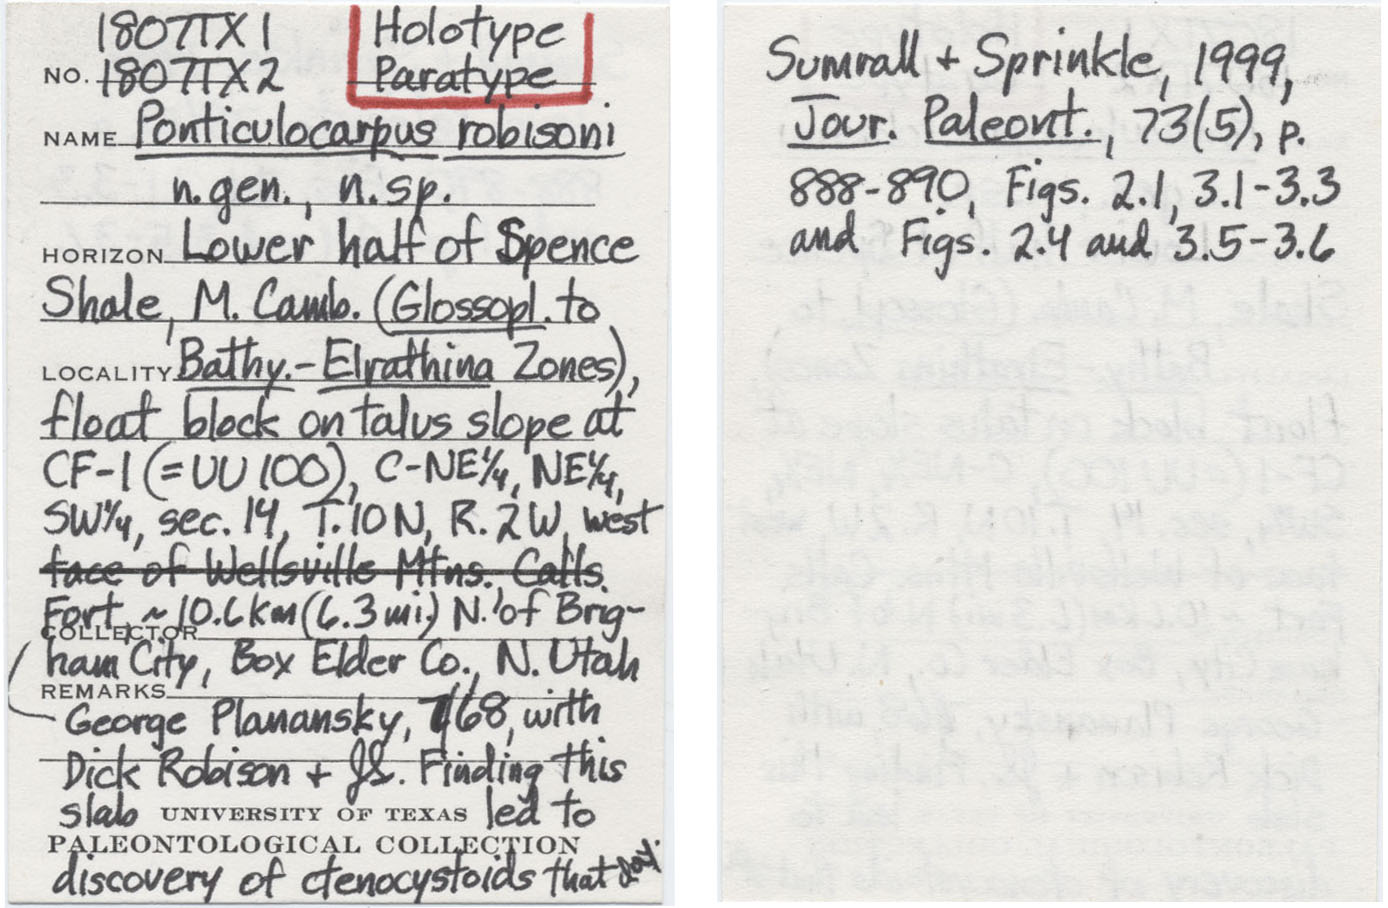 1807TX1 Holotype
NO. 1807TX2 Paratype
NAME Ponticulocarpus robisoni
n.gen., n.sp.
HORIZON Lower half of Spence
Shale, M. Camb. (Glossopl. to
LOCALITY Bathy.-Elrathina Zones),
float block on talus slope at
CF-1 (=UU 100), C-NE¼, NE¼,
SW¼, sec. 14, T.10N, R.2W, west
face of Wellsville Mtns. Calls
Fort, ~10.6km (6.3 mi.) N. of Brig-
COLLECTOR
ham City, Box Elder Co., N. Utah
REMARKS
George Planansky, 7/68, with
Dick Robison + JS. Finding this
slab UNIVERSITY OF TEXAS led to
PALEONTOLOGICAL COLLECTION
discovery of ctenocystoids that day.
Sumrall + Sprinkle, 1999,
Jour. Paleont., 73(5), p.
888-890, Figs. 2.1, 3.1-3.3
and Figs. 2.4 and 3.5-3.6